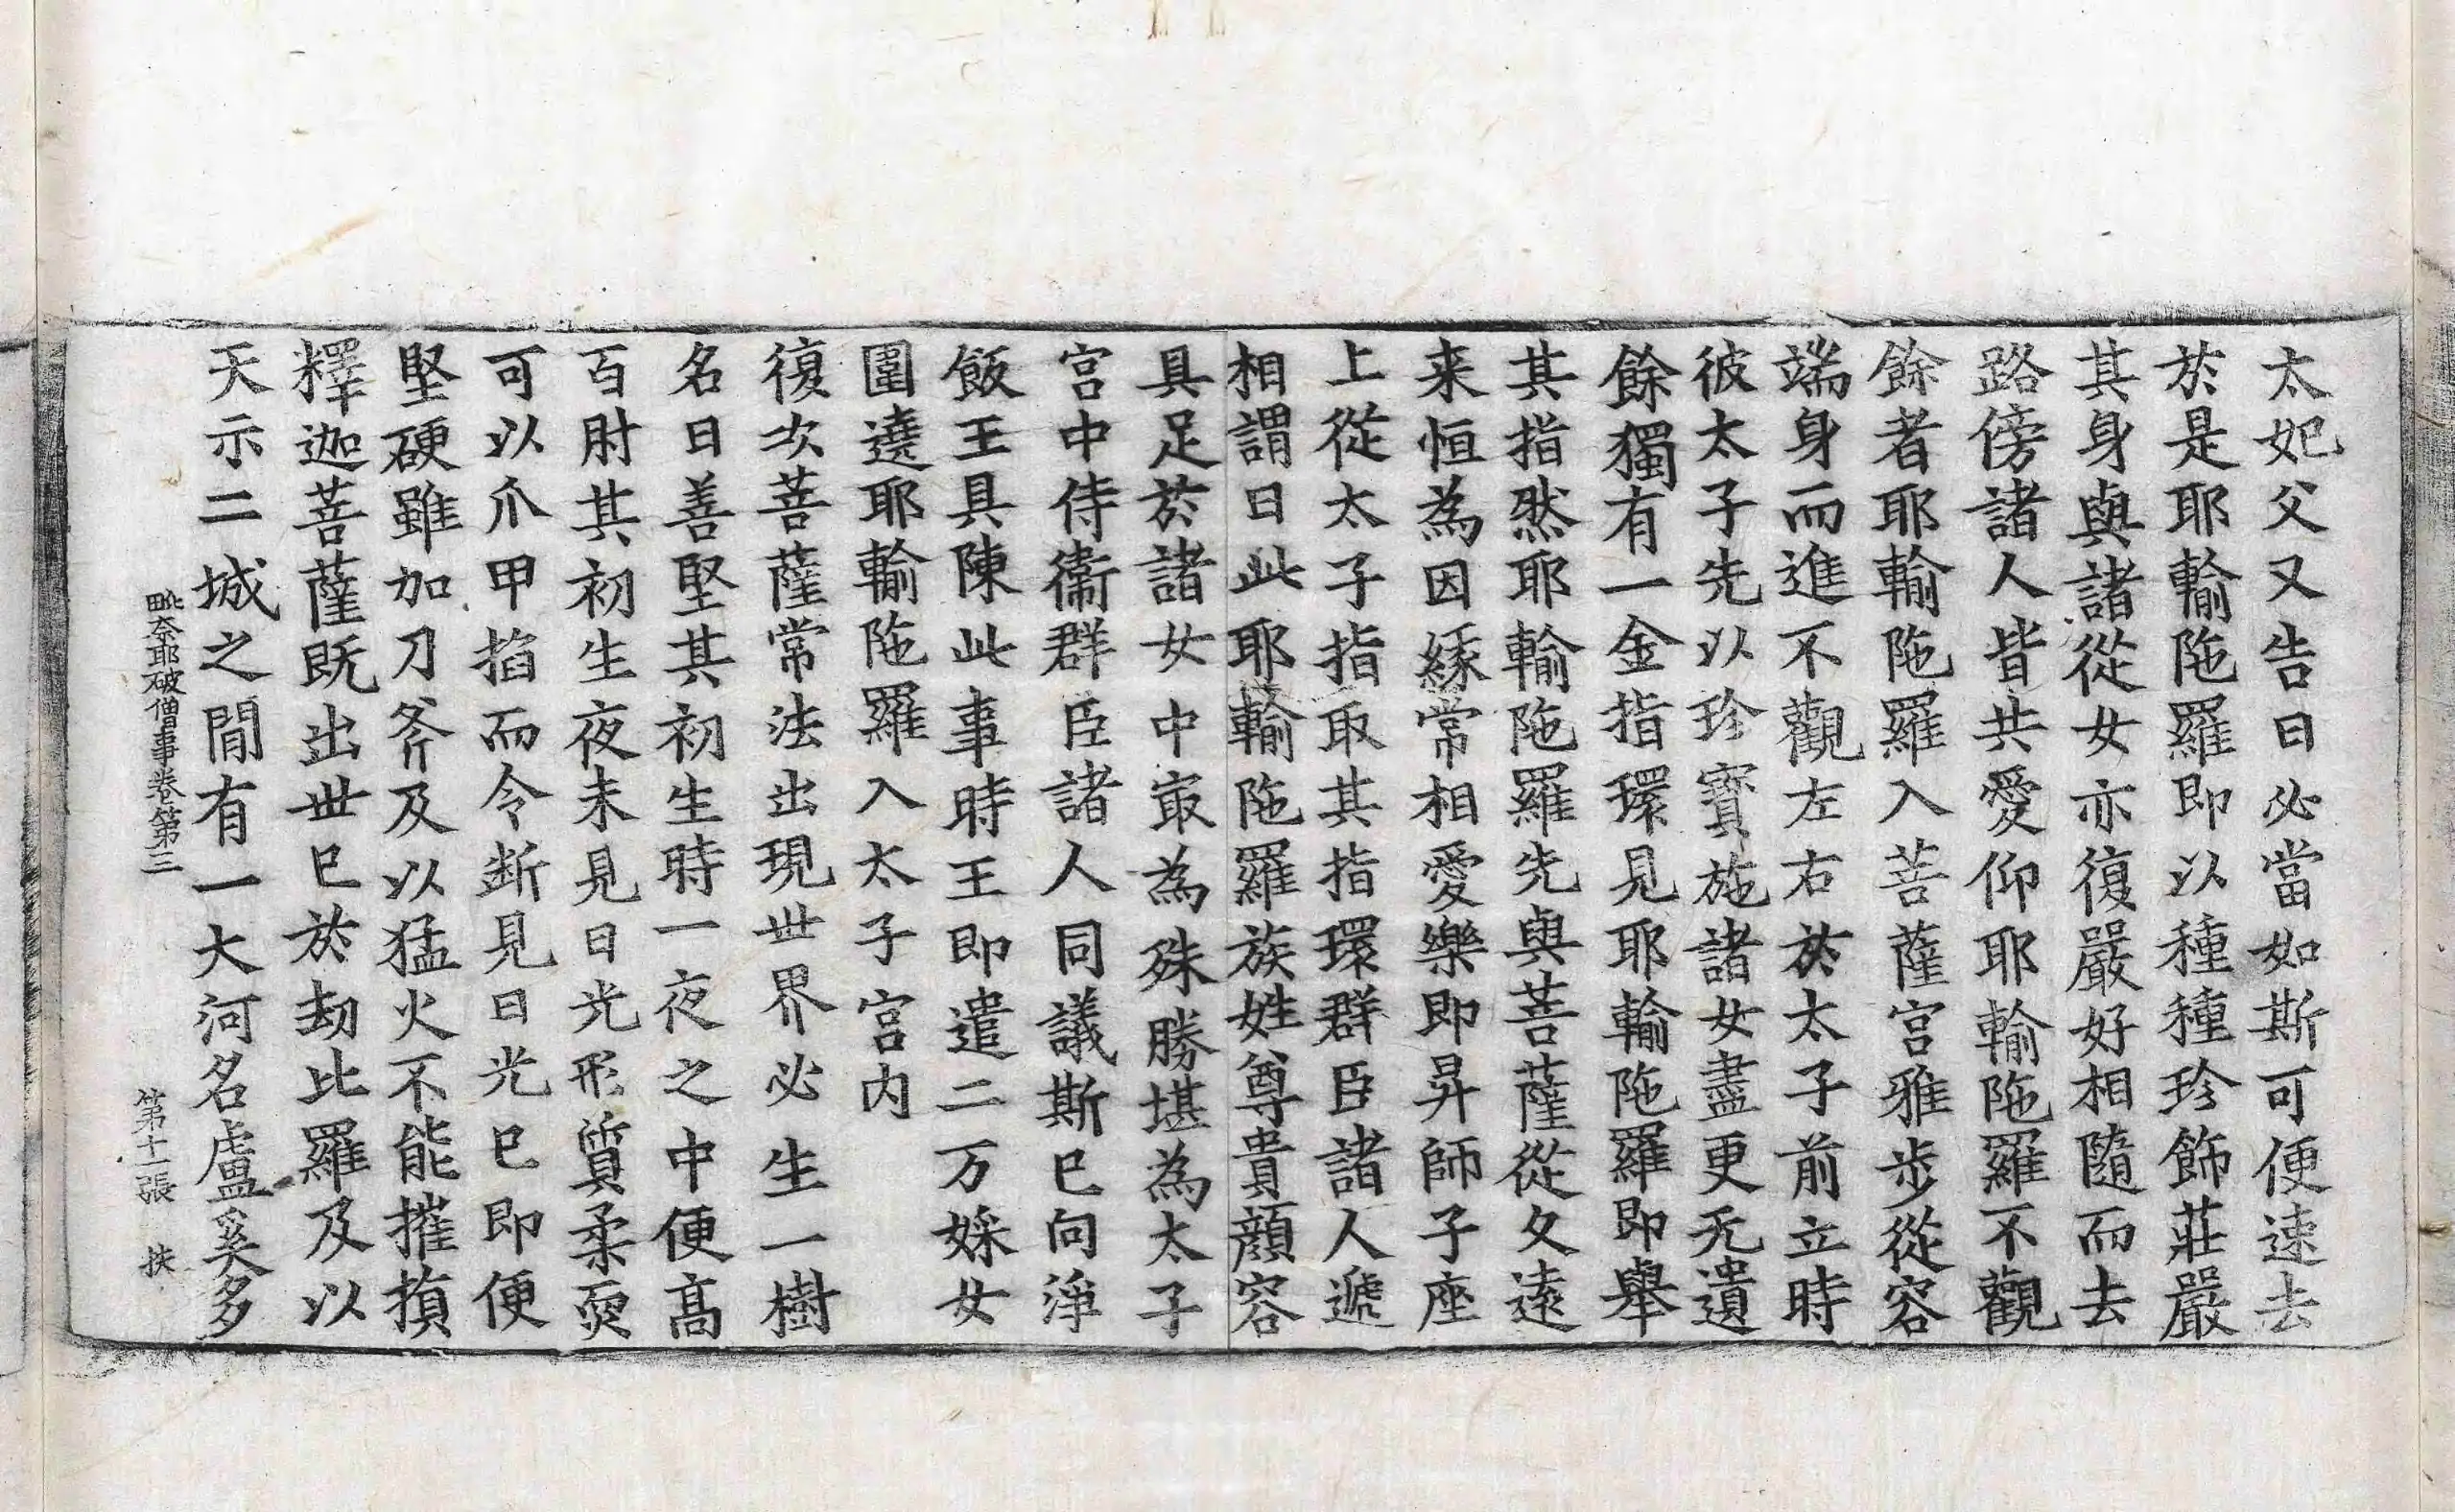 太妃父又告曰必當如斯可便速去
於是耶輸陁羅即以種種珍飾莊嚴
其身與諸從女亦復嚴好相隨而去
路傍諸人皆共愛仰耶輸陁羅不觀
餘者耶輸陁羅入菩薩宮雅步從容
端身而進不觀左右於太子前立時
彼太子先以珍寶施諸女盡更无遺
餘獨有一金指環見耶輸陁羅即舉
其指然耶輸陁羅先與菩薩從久遠
来恒為因緣常相愛樂即昇師子座
上從太子指取其指環群臣諸人遞
相謂曰此耶輸陁羅族姓尊貴顔容
具足於諸女中冣為殊勝堪為太子
宮中侍衞群臣諸人同議斯已向淨
飯王具陳此事時王即遣二万婇女
圍遶耶輸陁羅入太子宮内
復次菩薩常法出現世界必生一樹
名曰善堅其初生時一夜之中便高
百肘其初生夜未見日光形質柔耎
可以爪甲掐而令断見日光已即便
堅硬雖加刀斧及以猛火不能摧損
釋迦菩薩既出世已於劫比羅及以
天示二城之間有一大河名盧奚多
毗奈耶破僧事卷第三 第十一張 扶